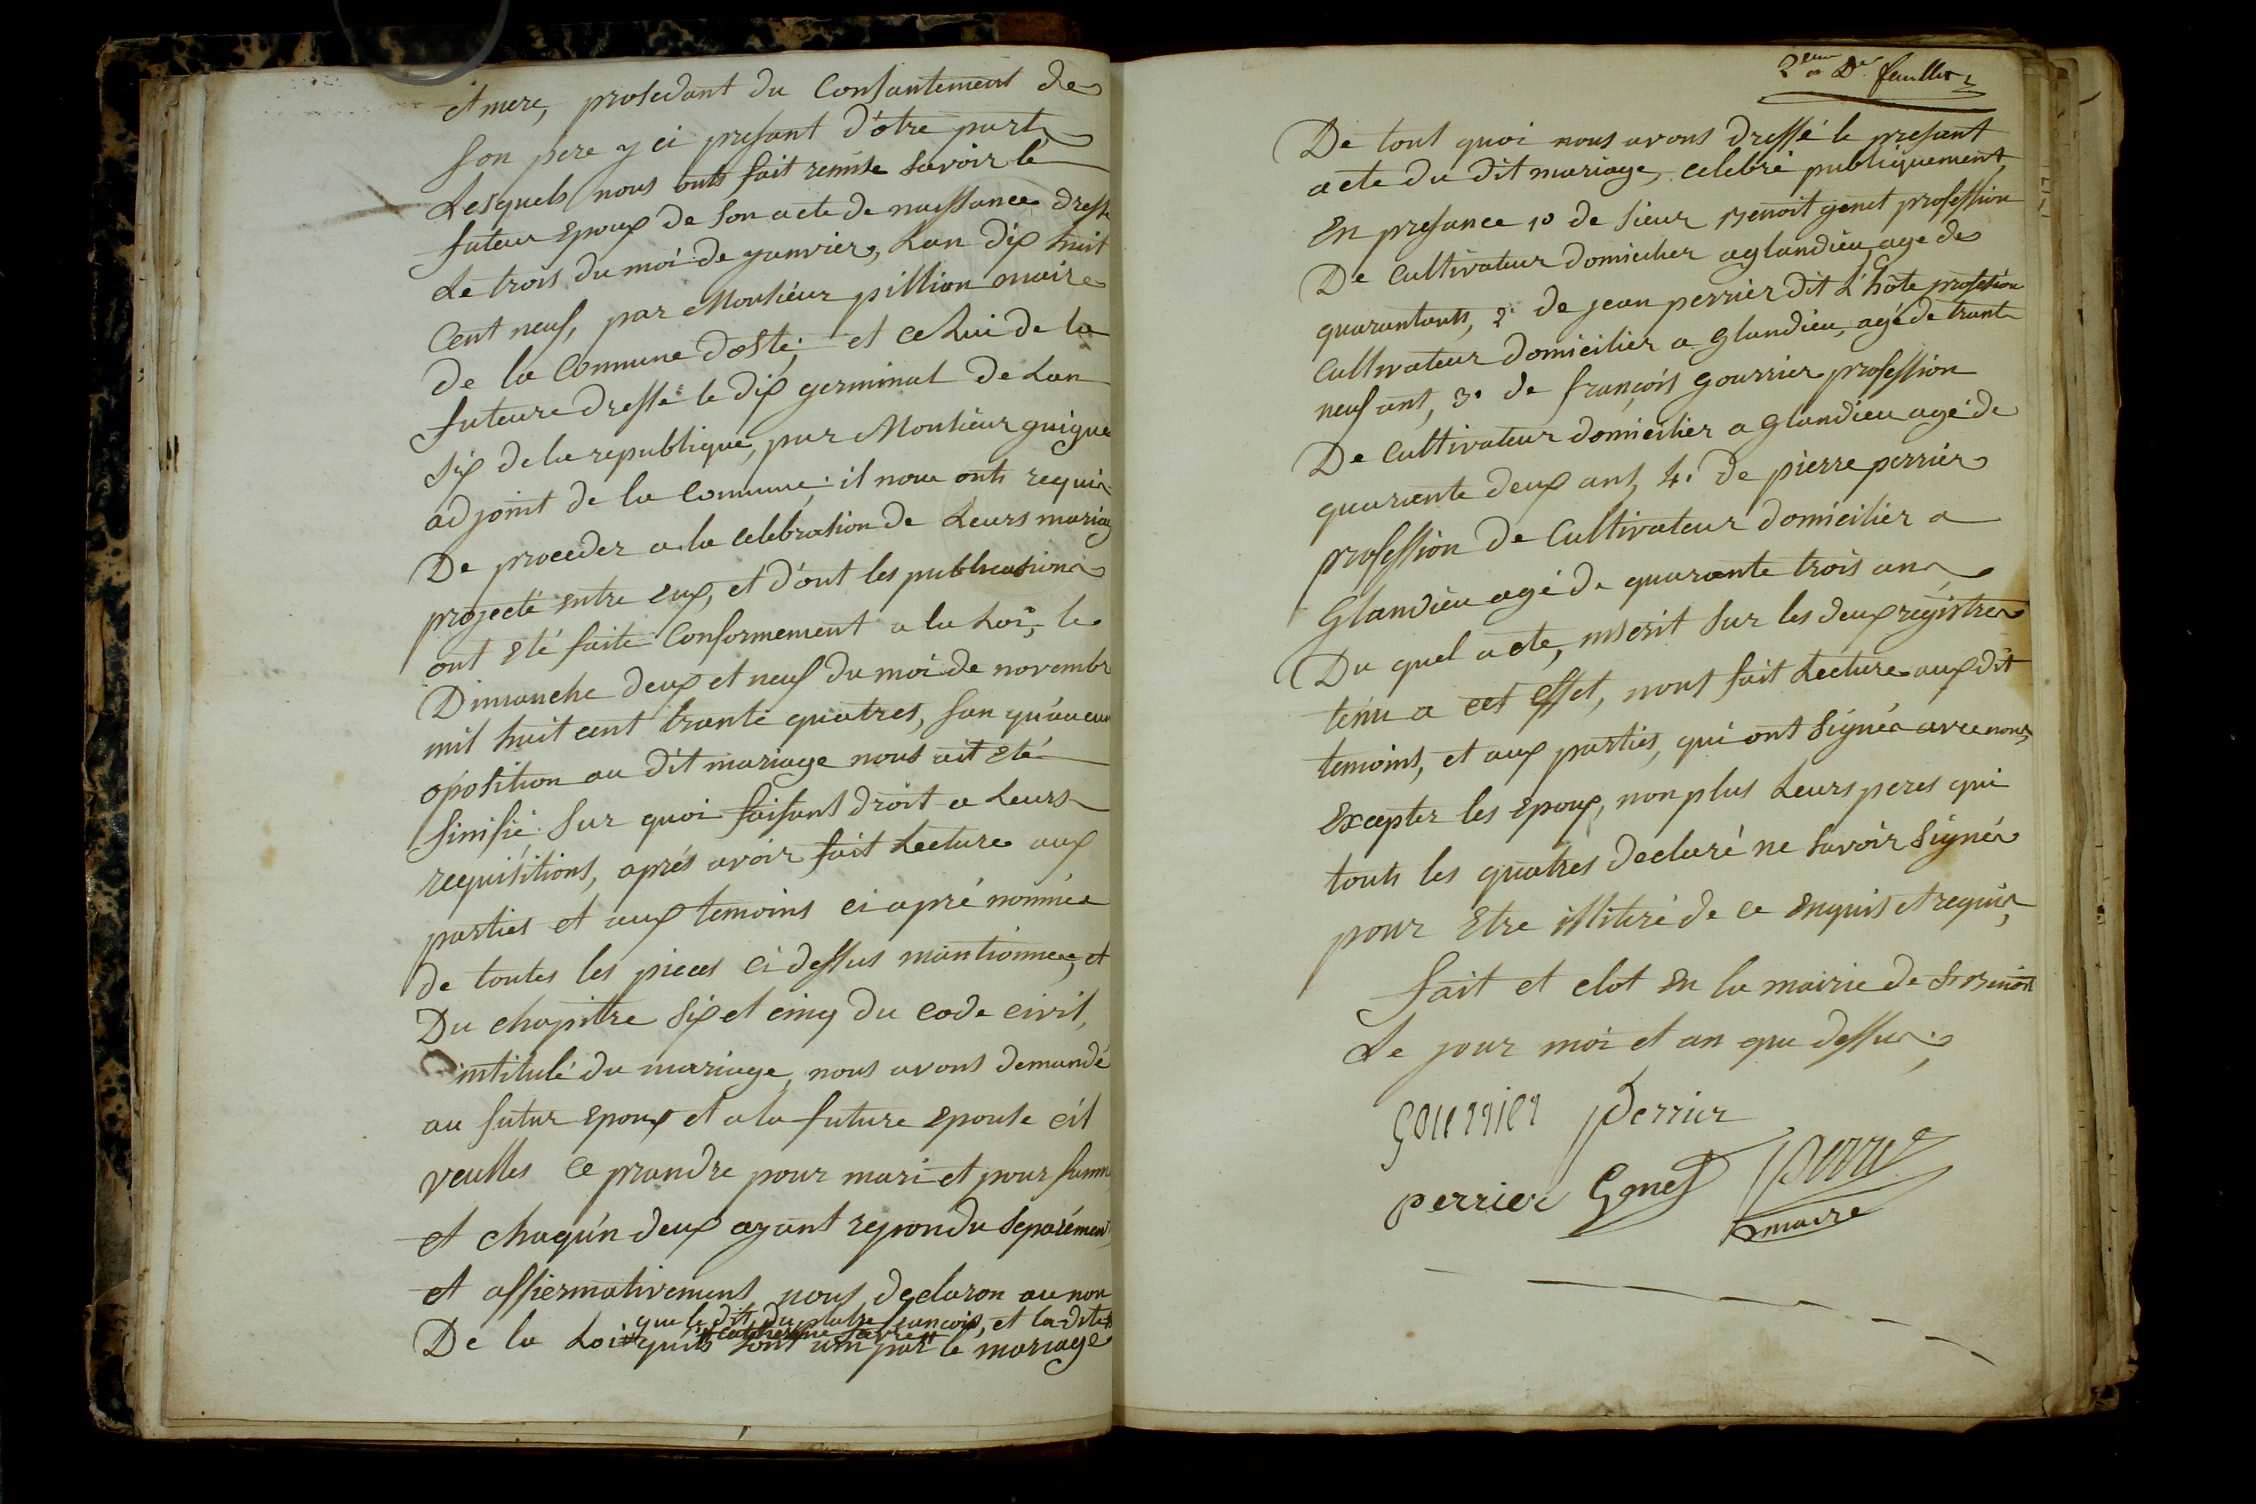 et mere, prosedant du Consantement de
son pere y ci présant d'otre part
Lesquels nous onts fait remise savoir le
futeur Epoux de son acte de naissance dressé
Le trois du moi de janvier, Lan dix huit
Cent neuf, par Monsieur pillion maire
de la Commune d'oste; et celui de la
future dressé le dix germinal de Lan
six de la republique, par Monsieur guigue
adjoint de la Commune; il nous onts requis
De proceder a la celebration de Leurs mariag
projecté entre eux, et d'ont les publications
ont eté faite Conformement a la Loi, le
Dimanche deux et neuf du moi de novembr
mil huit cent trante quatres, san qu'aucun
oposition au dit mariage nous ait eté
sinifié. Sur quoi faisant droit a Leurs
requisitions, aprés avoir fait Lecture aux
parties et aux temoins ci apré nommée
de toutes les pieces ci dessus mantionnee, et
Du chapitre Six et cinq du Code civil,
intitulé du mariage, nous avons demandé
au futur epoux et a la future epouse cil
veulles ce prandre pour mari et pour famm
et chaqu'n deux ayant repondu separément
et affiermativement nous declaron au nom
que le dit du platre francois, et la dite
catherine favre
De la Loi qu'ils sont uni par le mariage
2eme et Der feuillet
De tout quoi nous avons dressé le présant
acte du dit mariage, celebré publiquement
En presance 1o de sieur Benoit genet profession
De Cultivateur domicilier a glandieu age de
quarantants, 2. de jean perrier dit L'hote profession
Cultivateur domicilier a glandieu, agé de trante
neuf ant, 3. de françois gourrier profession
De Cultivateur domicilier a glandieu agé de
quarante deux ant, 4. de pierre perrier
profession de Cultivateur domicilier a
Glandieu agé de quarante trois ans
Du quel acte, inscrit sur les deux registres
tenu a cet effet, nout fait Lecture aux dit
temoins, et aux parties, qui ont signés avec nous,
Excepter les epoux, non plus Leurs peres qui
touts les quatres declaré ne savoir signer
pour Etre illiteré de ce enquis et requis,
fait et clot en la mairie de St Benoit
Le jour moi et an que dessus;
gourrier perrier
perrier Genet perrier
maire